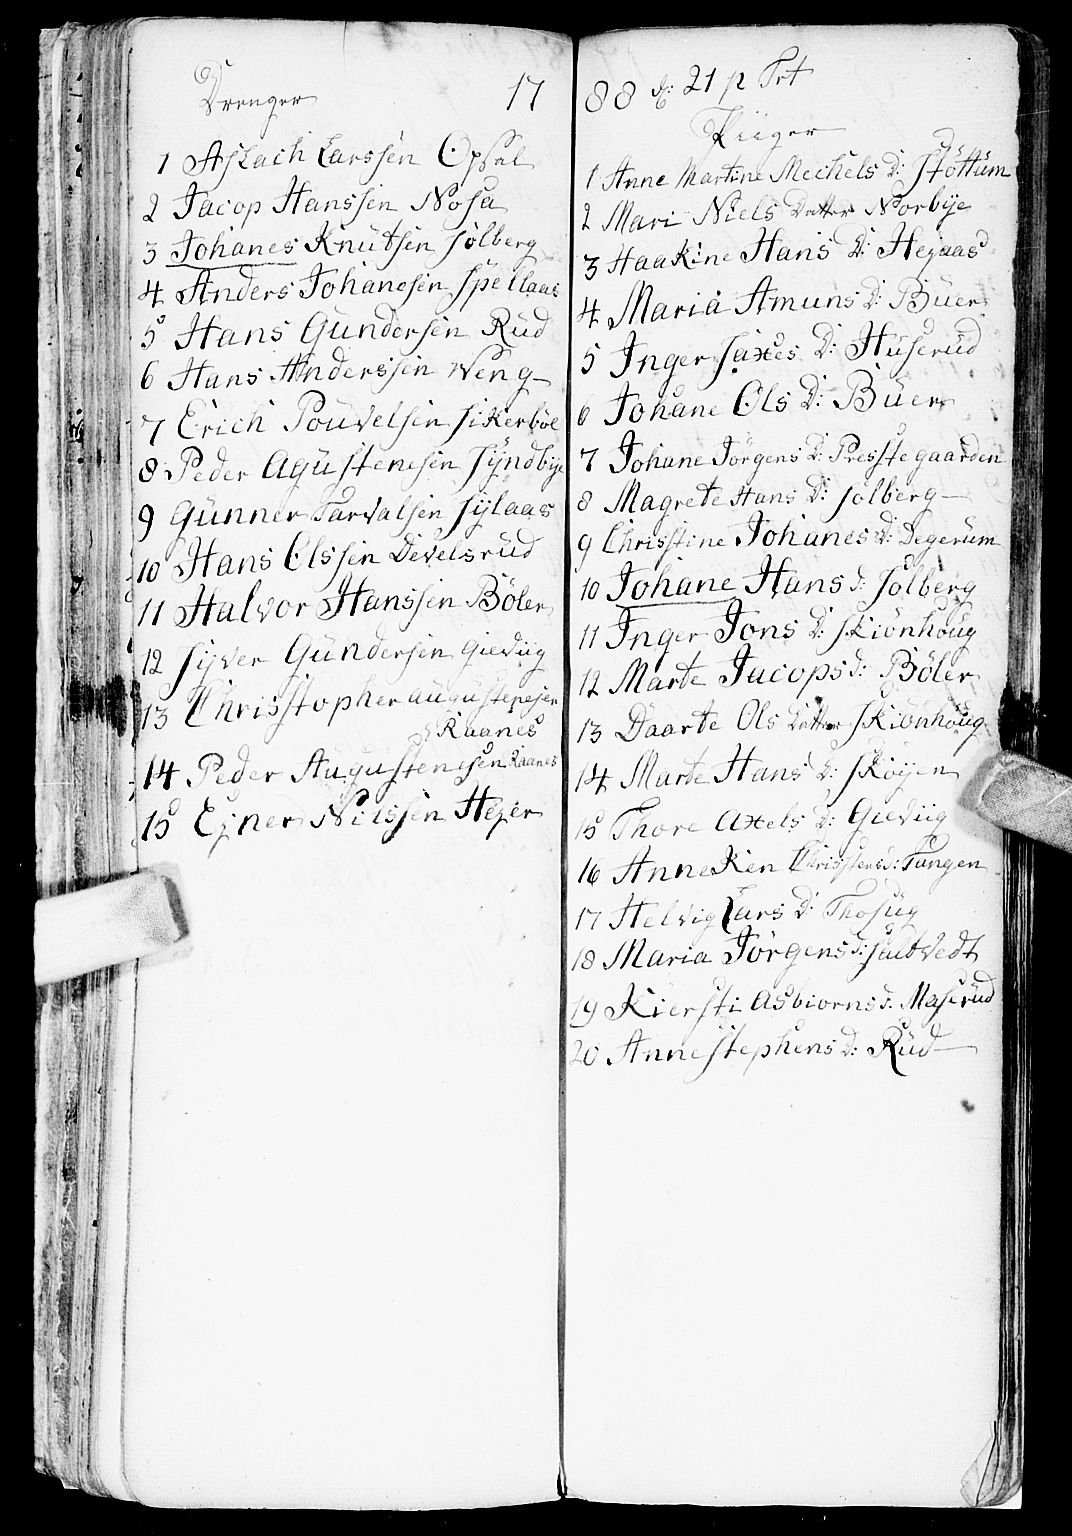 Drenger 17
1 Aslach Larssen Opsal
2 Jacop Hanssen Nosa
3 Johanes Knutsen Solberg
4 Anders Johanesen Spellaas
5 Hans Gundersen Rud
6 Hans Anderssen Weng
7 Erich Pouvelsen Sikerböl
8 Peder Agustenesen Syndbye
9 Gunner Tarvalsen Sylaas
10 Hans Olssen Develsrud
11 Halvor Hanssen Böler
12 Syver Gundersen Gievüg
13 Chrisstopher augustenesen
Raanes
14 Peder Augustenesen Raanes
15 Ejner Nilssen Hejer
88 d: 21 p Trt
Piiger
1 Anne Martine Mechels D: Stöttum
2 Mari Niels Datter Norbye
3 Haakine Hans D: Hejaas
4 Maria Amuns D: Buer
5 Inger Saxes D: Huserud
6 Johane Ols D: Buer
7 Johane Jörgens D: Presstegaarden
8 Magrete Hans D: Solberg
9 Chrisstine Johanes D: Degerum
10 Johane Hans d: Solberg
11 Inger Jons D: Skiönhoug
12 Marte Jacops d: Böler
13 Daarte Ols Datter Skiönhoug
14 Marte Hans D: Sköyen
15 Thore Axels D: Gievüg
16 Anneken Chrisstens d: Tangen
17 Helvig Lars D: Thosüg
18 Maria Jörgens d: Saltvedt
19 Kiersti Asbiorns d: Maserud
20 Anne Stephens d: Rud